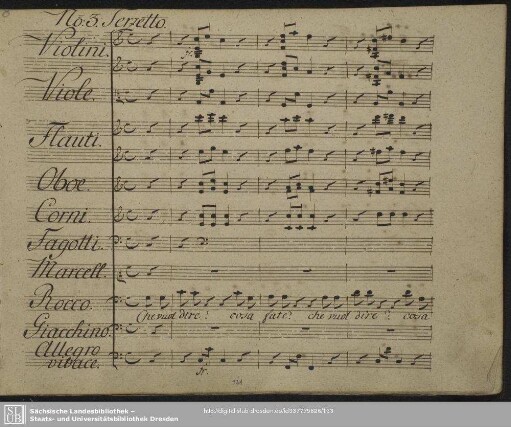 No. 3. Terzetto.
Violini.
Viole.
Flauti.
Oboe.
Corni.
Fagotti.
Marcell.
Rocco.
Che vuol dire? cosa fate? che vuol dire? cosa
Giacchino.
Allegro
vivace.
Sächsische Landesbibliothek –
Staats- und Universitätsbibliothek Dresden
SLUB